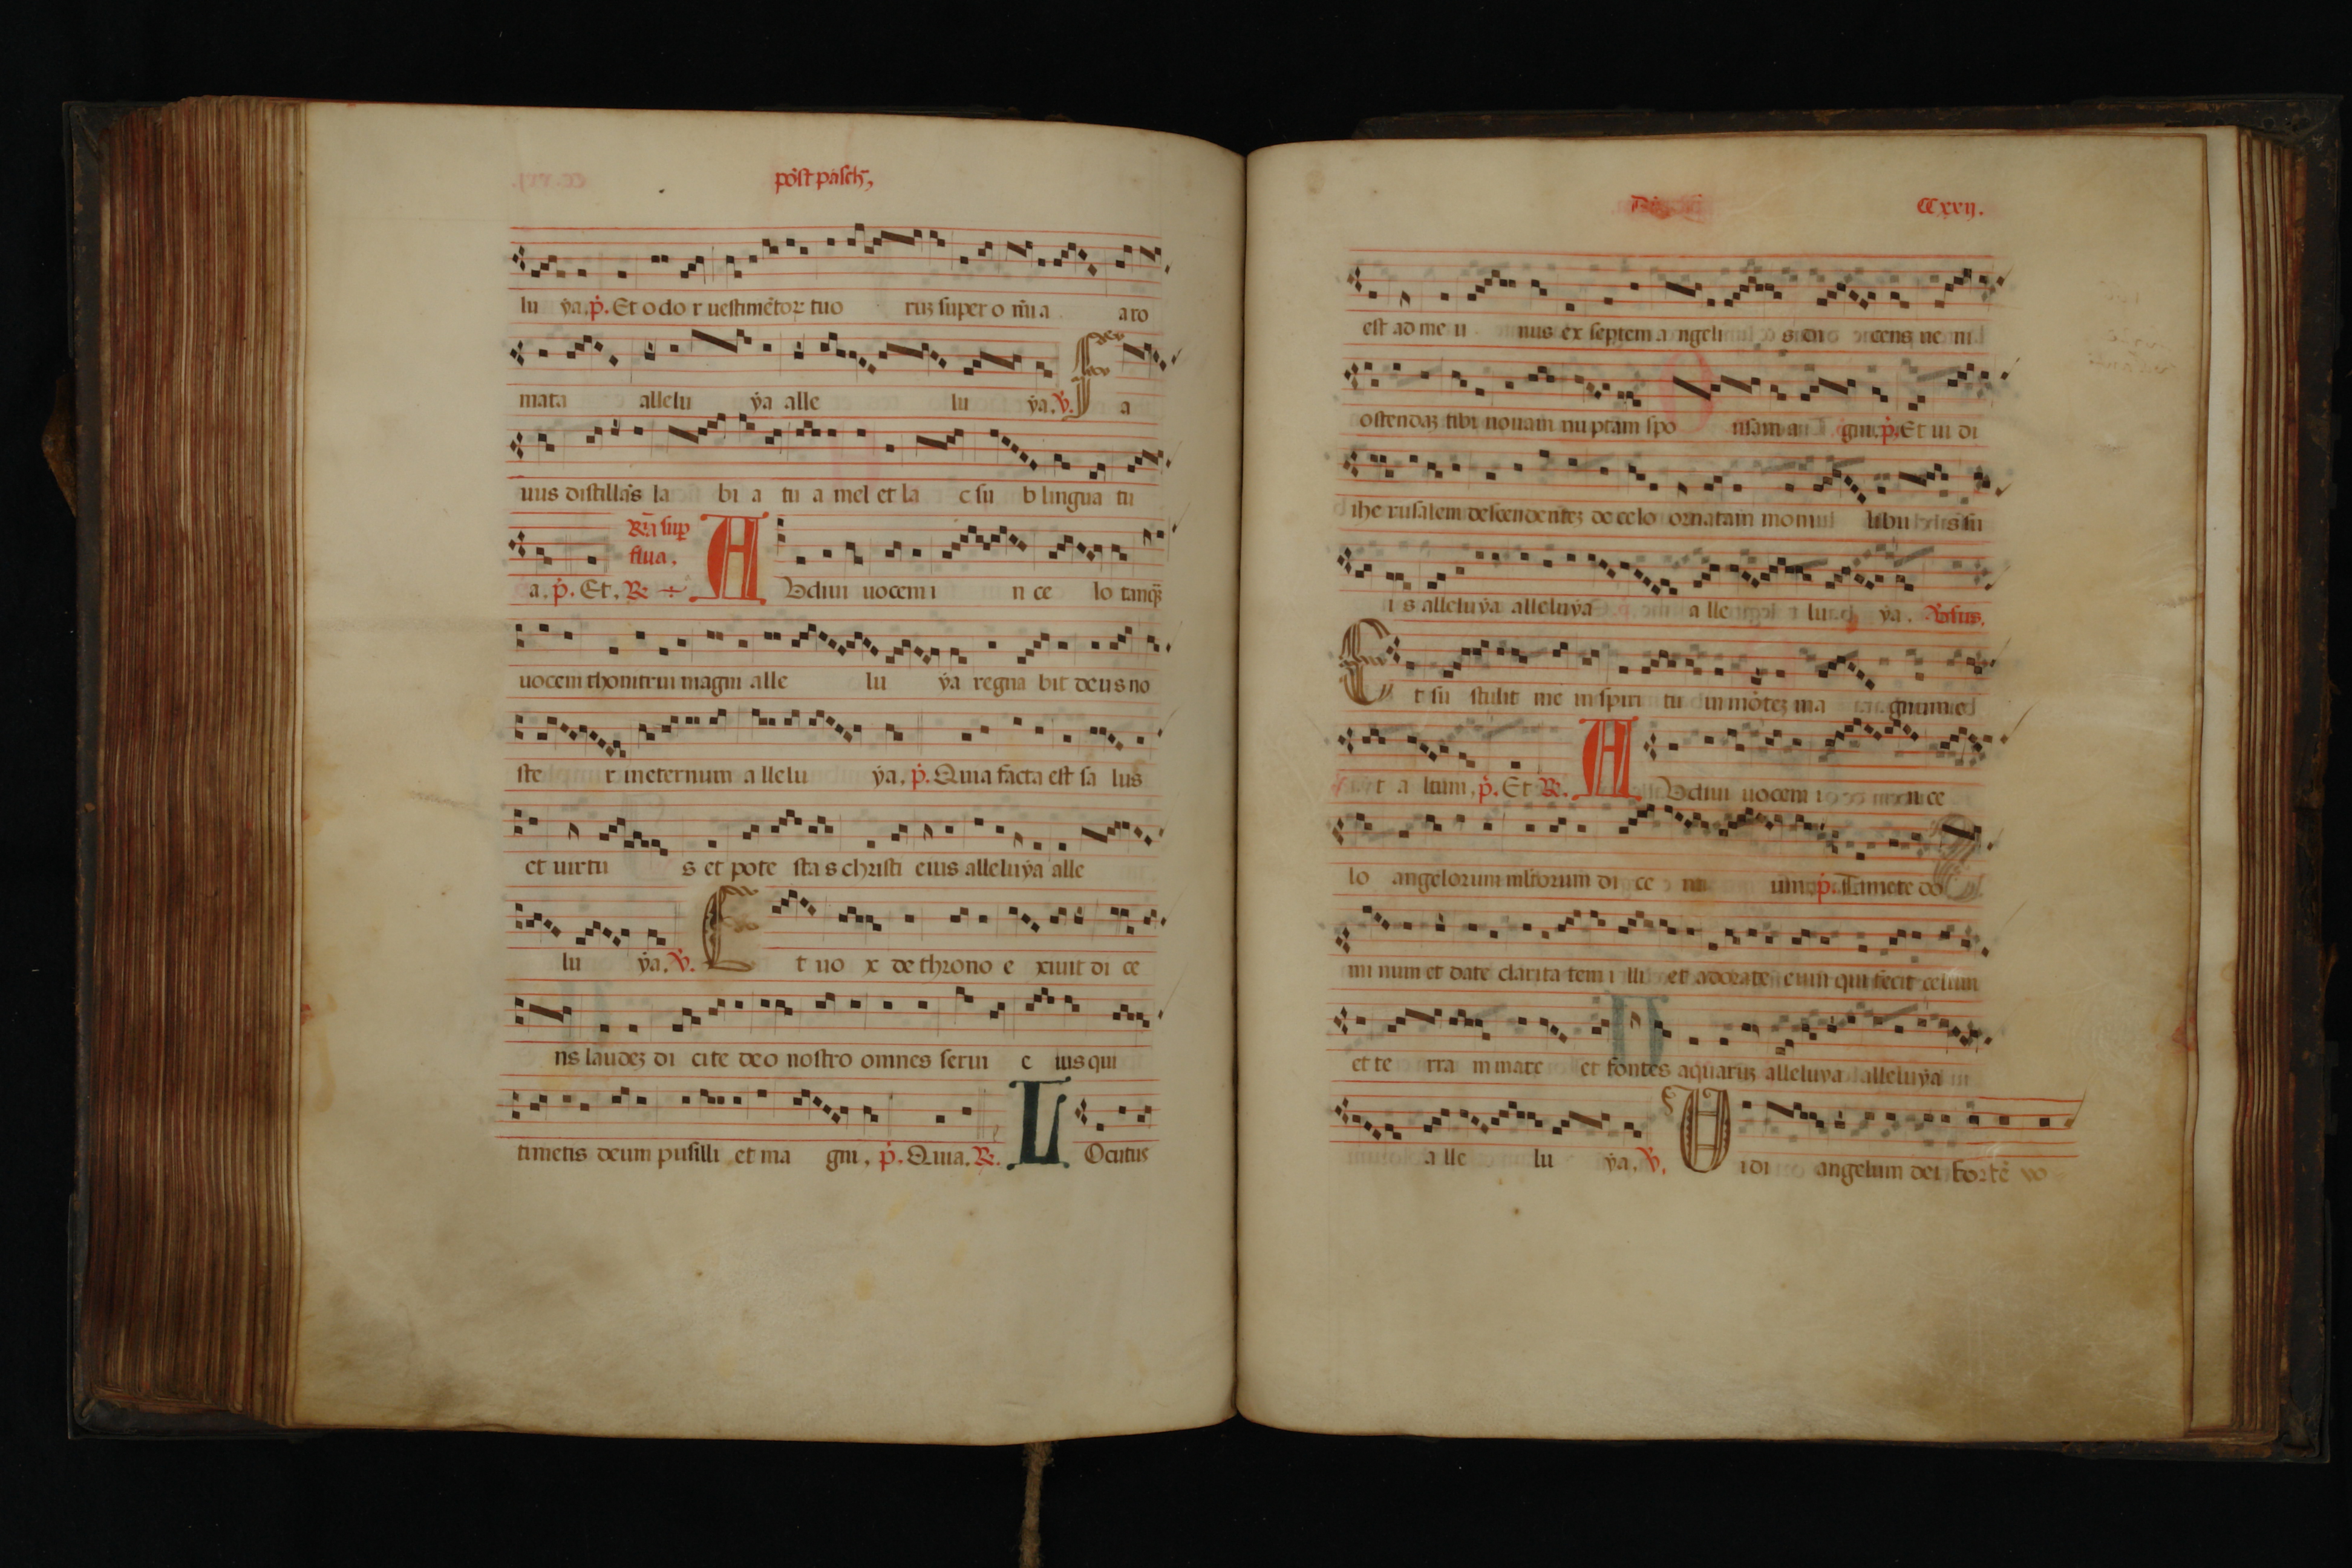 post pasch,
lu ya. p. Et odo r uestimētoꝝ tuo ruꝫ super o mīa aro
mata allelu ya alle lu ya. V. Fa
uus distillās la bi a tu a mel et la c su b lingua tu
a. p. Et. R
flua.
A Udiui uocem i n ce lo tanqꝫ
uocem thonitrui magni alle lu ya regna bit deus no
ster in eternum allelu ya. p. Quia facta est sa lus
et uirtu s et pote stas christi eius alleluya alle
lu ya. V. E t uo x de throno e xiuit di ce
ns laudeꝫ di cite deo nostro omnes serui e ius qui
timetis deum pusilli et ma gni. p. Quia. R. L Ocutus
CCxxij.
est ad me u nus ex septem angelis di cens ueni
ostendaꝫ tibi nouam nuptam spo nsam a gni. p. Et ui di
iherusalem descendenteꝫ de celo ornatam monilibus su
is alleluya alleluya alle lu ya. Vsus.
E t su stulit me in spiri tu in mōteꝫ ma gnum e
t altum. p. Et R. A Udiui uocem i n ce
lo angelorum mltorum di ce ntium. p. Timete do
minum et date claritatem illi et adorate eum qui fecit celum
et te rra m mare et fontes aquaruꝫ alleluya alleluya
alle lu ya. V. U idi angelum dei fortē uo